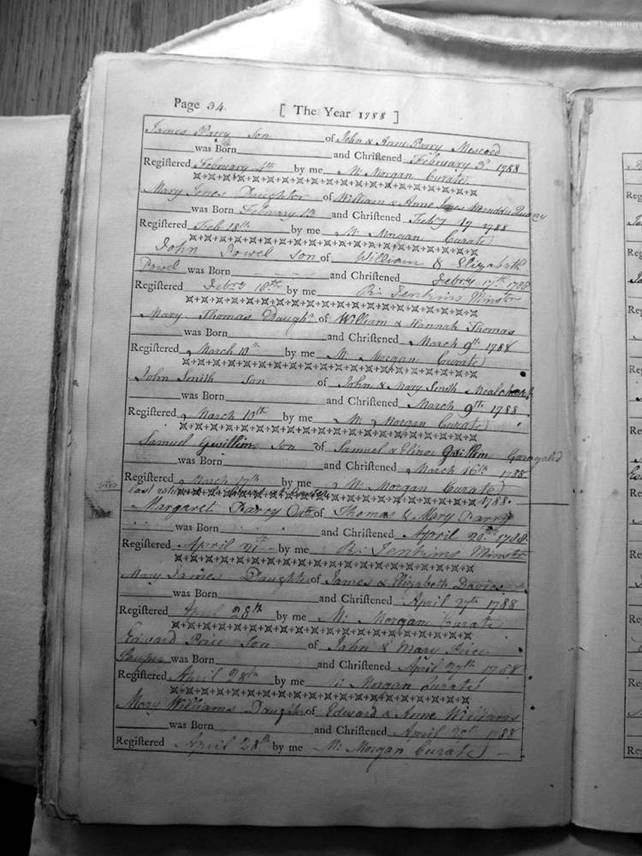 Page 34. [ The Year 1788 ]
James Parry Son of John & Anne Parry
was Born and Christened February 3d 1788
Registered February 4th by me M: Morgan Curate
Mary Jones Daughter of William & Anne Jones
was Born February 13 and Christened Feby 17 1788
Registered Feb 18th by me M: Morgan Curate
John Powel Son of William & Elizabeth
Powel was Born and Christened Febry 17th 1788
Registered Febry 18th by me Jenkins Minstr
Mary Thomas Daughr of William & Hannah Thomas
was Born and Christened March 9th 1788
Registered March 10th by me M: Morgan Curate
John Smith Son of John & Mary Smith
was Born and Christened March 9th 1788
Registered March 10th by me M: Morgan Curate
Samuel Gwillim Son of Samuel & Elinor Gwillim
was Born and Christened March 16th 1788
Registered March 17th by me M: Morgan Curate
1788
Margaret Parry of Thomas & Mary Parry
was Born and Christened April 1788
Registered April 21st by me Jenkins Minstr
Mary James Daughter of James & Elizabeth Davies
was Born and Christened April 27th 1788
Registered April 28th by me M: Morgan Curate
Edward Price Son of John & Mary Price
was Born and Christened April 27th 1788
Registered April 28th by me Morgan Curate
Mary Williams Daughter of Edward & Anne Williams
was Born and Christened April 1788
Registered April 28th by me M: Morgan Curate